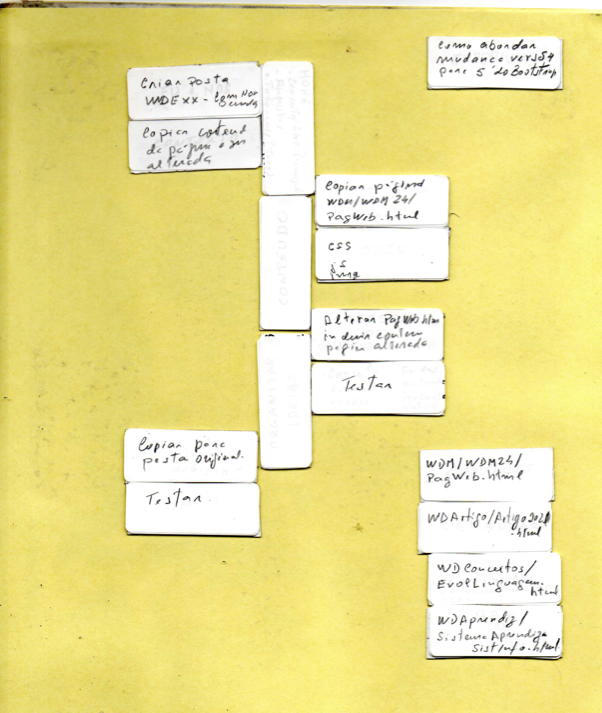 Como abordar
mudança versã 4
para 5 do Bootstrap
Criar Pasta
WDExx - Com Nov
Copiar conteud
da página a ser
alterada
Copiar página
WDM/WDM 24/
PagWeb.html
CSS
js
Alterar PagWeb.html
página alterada
Testar
Copiar para
pasta original.
Testar.
WDM/WDM24/
PagWeb.html
WDArtigo/Artigo2021
.html
WDConceitos/
EvolLinguagem.
html
WDAprendiz/
SistemaAprendiza
SistInfo.html
CONTEUDO